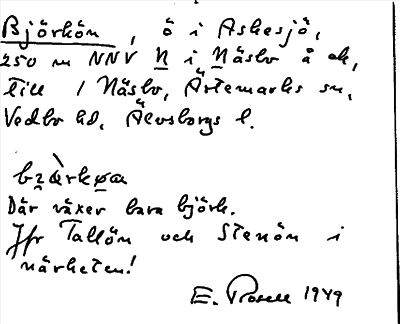 Björkön, ö i Askesjö,
250 m NNV N i Näsbo å ek,
till 1 Näsbo, Ärtemarks sn,
Vedbo hd, Älvsborgs l.
bz̀ærkøa
Där växer bara björk.
Jfr Tallön och Stenön i
närheten!
E. Rosell 1949